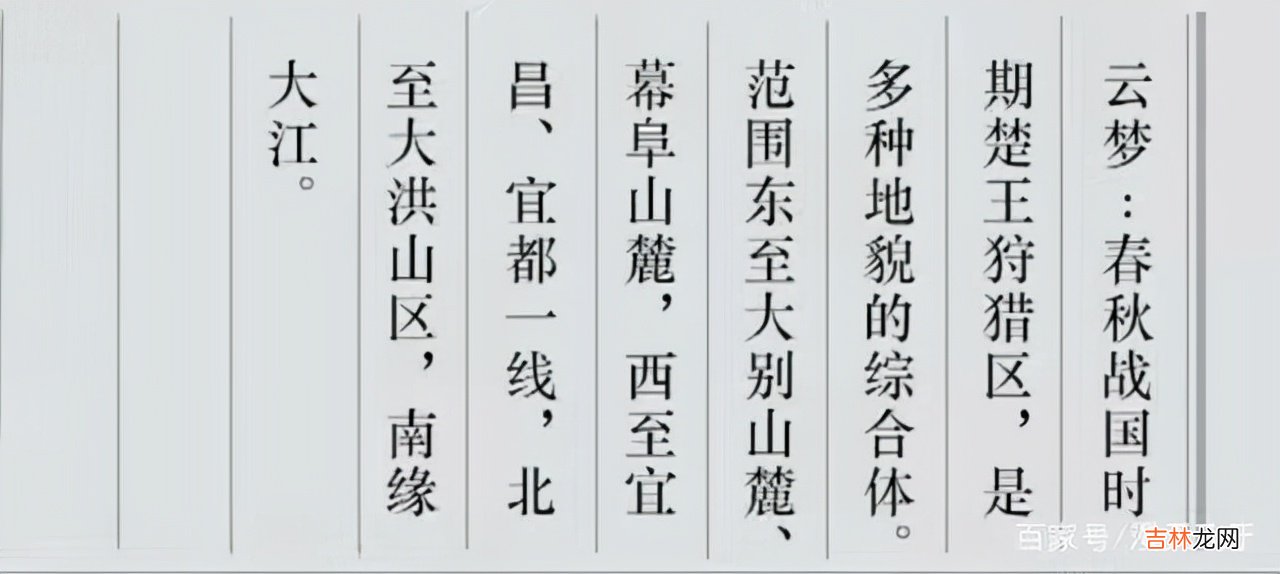 云梦：春秋战国时
期楚王狩猎区，是
多种地貌的综合体。
范围东至大别山麓、
幕阜山麓，西至宜
昌、宜都一线，北
至大洪山区，南缘
大江。
百家号/
吉林龙网